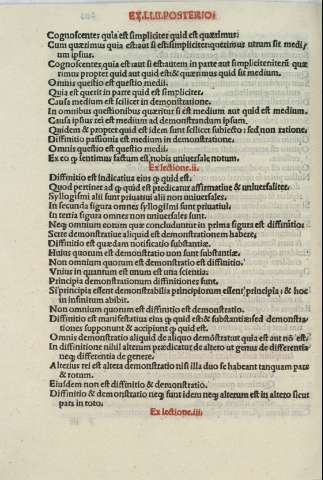 EX.LI.II.POSTERIO:
Cognoscentes quia est simpliciter quid est quærimus:
Cum quærimus quia est aut si est simpliciter: quærimus utrum sit medi
um ipsius.
Cognoscentes, quia est aut si est autem in parte aut simpliciter iterū quæ
rimus propter quid aut quid est & quærimus quid sit medium.
Omnis questio est questio medii.
Quia est quærit in parte quid est simpliciter.
Causa medium est scilicet in demonstratione.
In omnibus questionibus quæritur si est medium aut quid est medium.
Causa ipsius rei est medium ad demonstrandum ipsum.
Quidem & propter quid est idem sunt scilicet subiecto: sed non ratione.
Diffinitio passionis est medium in demonstratione.
Omnis questio est questio medii.
Ex eo ꝙ sentimus factum est nobis uniuersale notum.
Ex lectione.ii.
Diffinitio est indicatiua eius ꝙ quid est.
Quod pertinet ad ꝙ quid est predicatur affirmatiue & uniuersaliter.
Syllogismi alii sunt priuatiui alii non uniuersales.
In secunda figura omnes syllogismi sunt priuatiui.
In tertia figura omnes non uniuersales sunt.
Neqꝫ omnium eorum quæ concluduntur in prima figura est diffinitio:
Scire demonstratiue aliquid est demonstrationem habere.
Diffinitio est quædam notificatio substantiæ.
Huius quorum est demonstratio non sunt substantiæ.
Non omnium quorum est demonstratio est diffinitio.
Vnius in quantum est unum est una scientia.
Principia demonstrationum diffinitiones sunt.
Si principia essent demonstrabilia principiorum essent principia; & hoc
in infinitum abibit.
Non omnium quorum est diffinitio est demonstratio.
Diffinitio est manifestatiua eius ꝙ quid est & substantiæ: sed demonstra-
tiones supponunt & accipiunt ꝙ quid est.
Omnis demonstratio aliquid de aliquo demōstrat quia est aut nō est.
In diffinitione nihil alterum prædicatur de altero ut genus de differentia
neqꝫ differentia de genere.
Alterius rei est altera demonstratio nisi illa duo se habeant tanquam pars
& totum.
Eiusdem non est diffinitio & demonstratio.
Diffinitio & demonstratio neqꝫ sunt idem neqꝫ alterum est in altero sicut
pars in toto.
Ex lectione.iii.